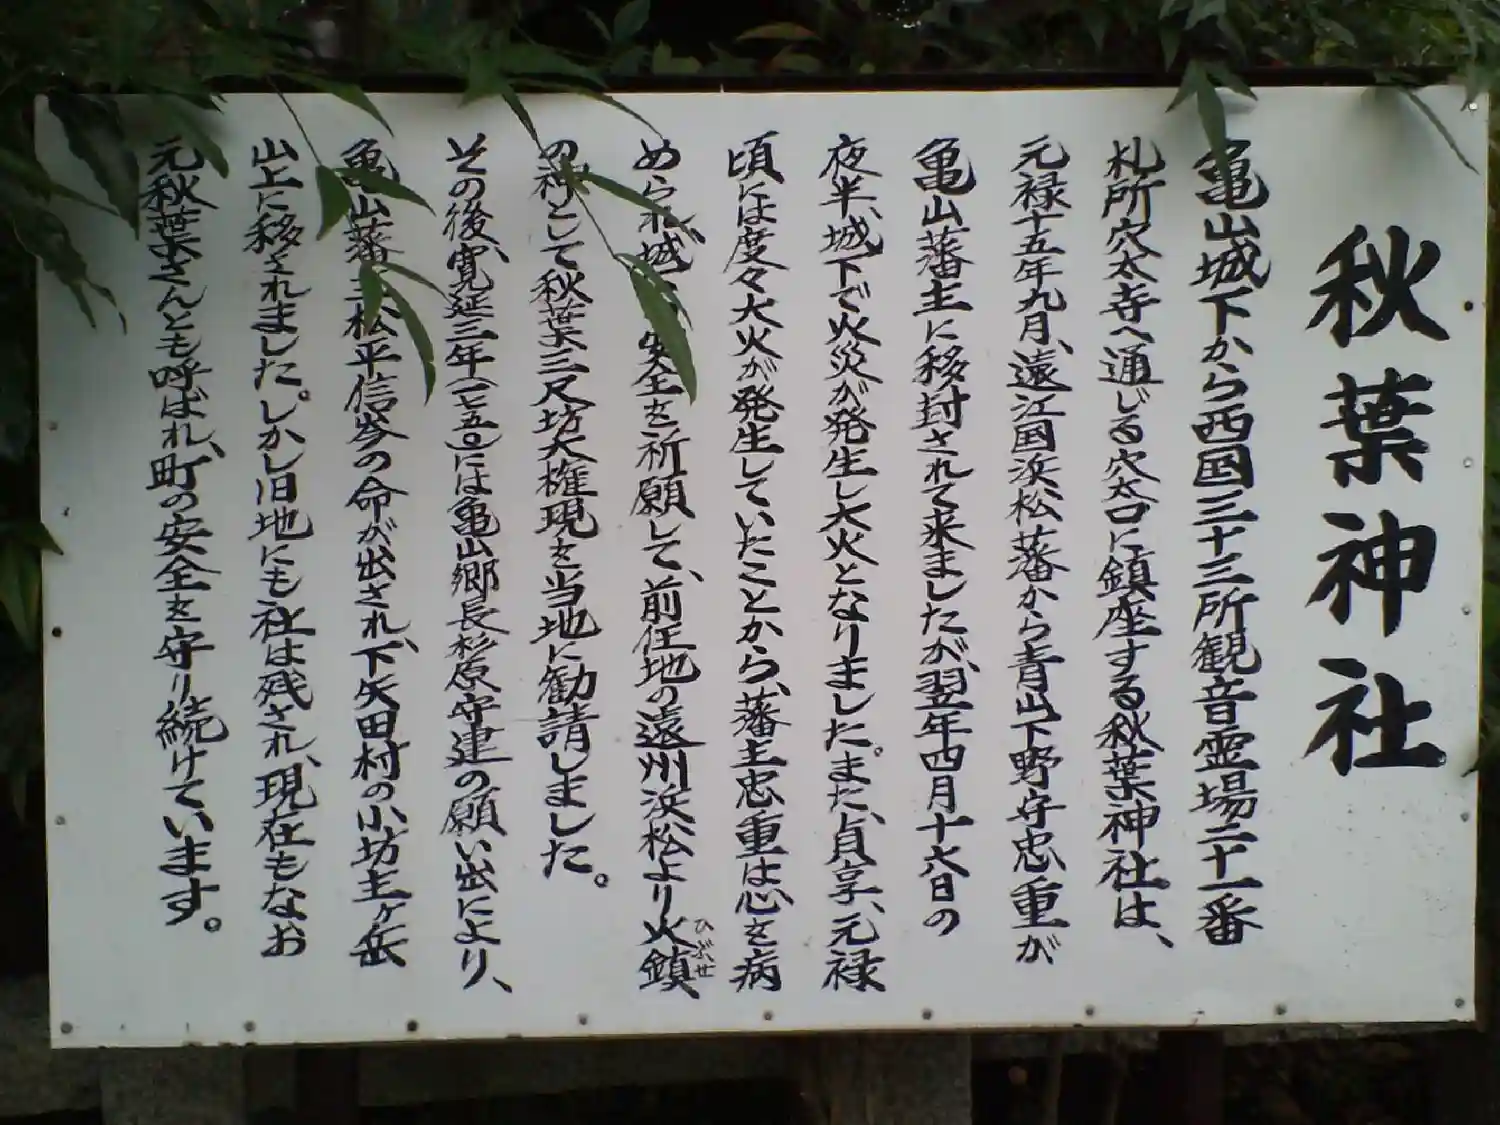 秋葉神社
亀山城下から西国三十三所観音霊場二十一番
札所穴太寺へ通じる穴太口に鎮座する秋葉神社は、
元禄十五年九月、遠江国浜松藩から青山下野守忠重が
亀山藩主に移封されて来ましたが、翌年四月十六日の
夜半、城下で火災が発生し大火となりました。また、貞享、元禄
頃には度々大火が発生していたことから、藩主忠重は心を病
められ、城下の安全を祈願して、前任地の遠州浜松より火鎮
ひぶせ
の神として秋葉三尺坊大権現を当地に勧請しました。
その後、寛延三年(一七五〇)には亀山郷長杉原守建の願い出により、
亀山藩主松平信岑の命が出され、下矢田村の小坊主ヶ岳
山上に移されました。しかし旧地にも社は残され、現在もなお
元秋葉さんとも呼ばれ、町の安全を守り続けています。